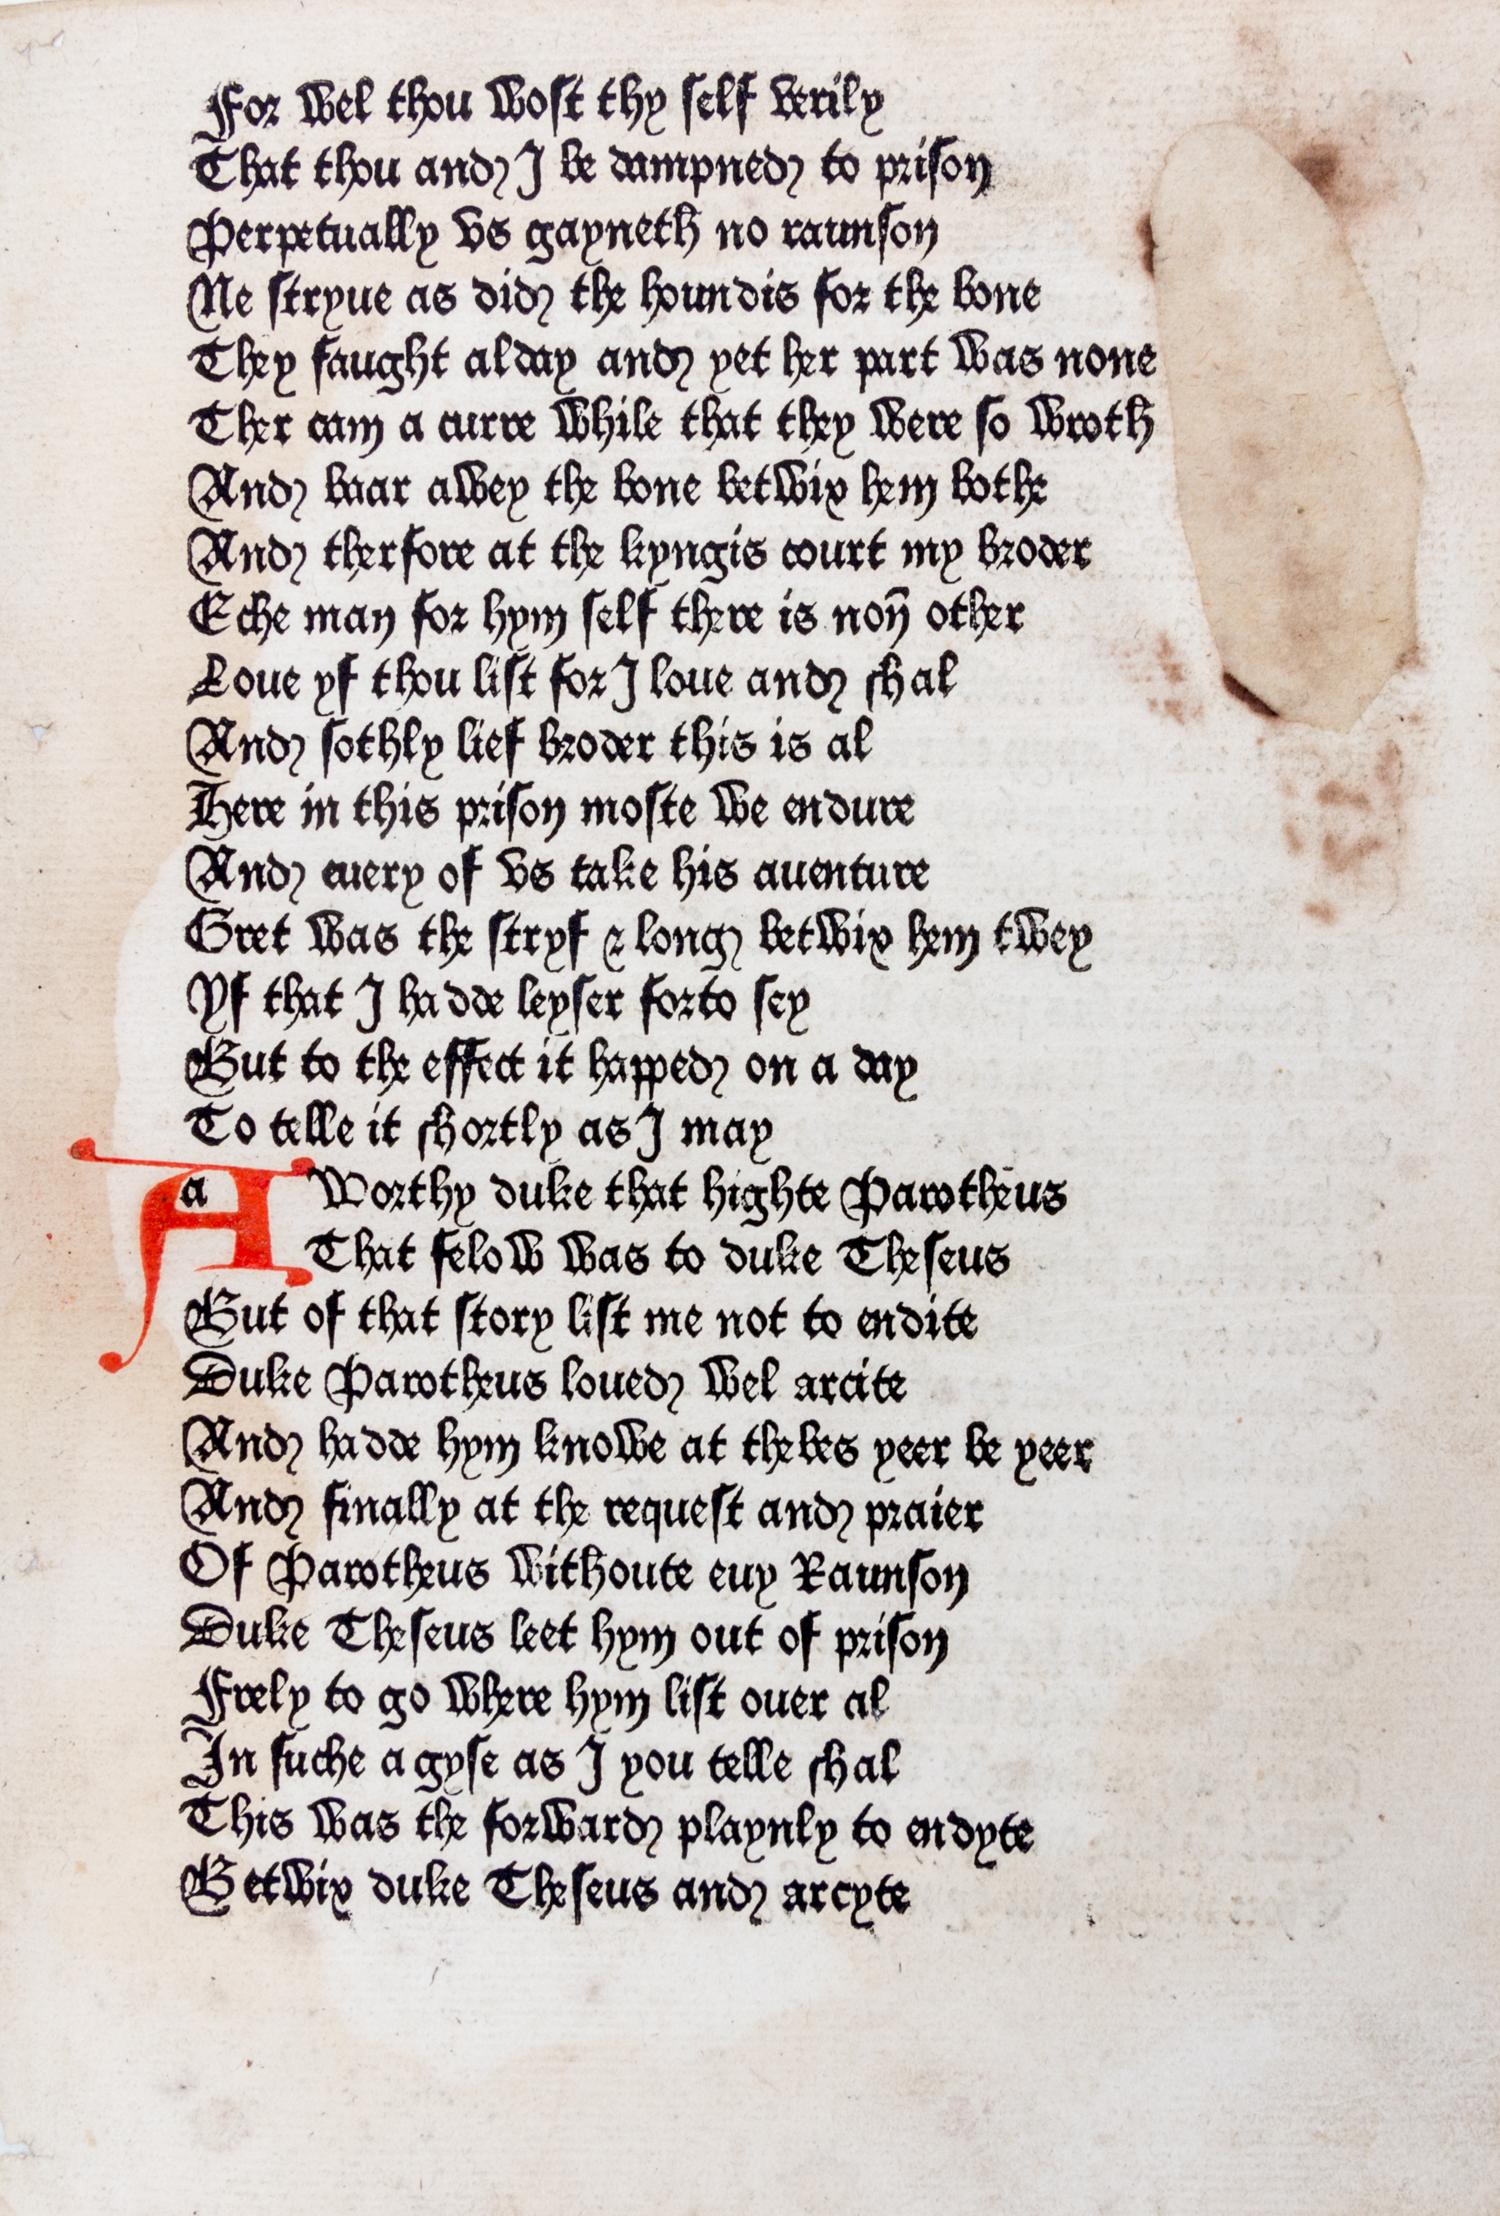 For wel thou wost thy self verily
That thou and I be dampned to prison
Perpetually vs gayneth no raunson
Ne stryue as did the houndis for the bone
They faught alday and yet her part was none
Ther cam a curre while that they were so wroth
And baar awey the bone betwix hem bothe
And therfore at the kyngis court my broder
Eche man for hym self there is non̄ other
Loue yf thou list for I loue and shal
And sothly lief broder this is al
Here in this prison moste we endure
And euery of vs take his auenture
Gret was the stryf & long betwix hem twey
Yf that I hadde leyser forto sey
But to the effect it happed on a day
To telle it shortly as I may
A a Worthy duke that highte Parotheus
That felow was to duke Theseus
But of that story list me not to endite
Duke Parotheus loued wel arcite
And hadde hym knowe at thebes yeer be yeer
And finally at the request and praier
Of Parotheus withoute euy Raunson
Duke Theseus leet hym out of prison
Frely to go where hym list ouer al
In suche a gyse as I you telle shal
This was the forward playnly to endyte
Betwix duke Theseus and arcyte